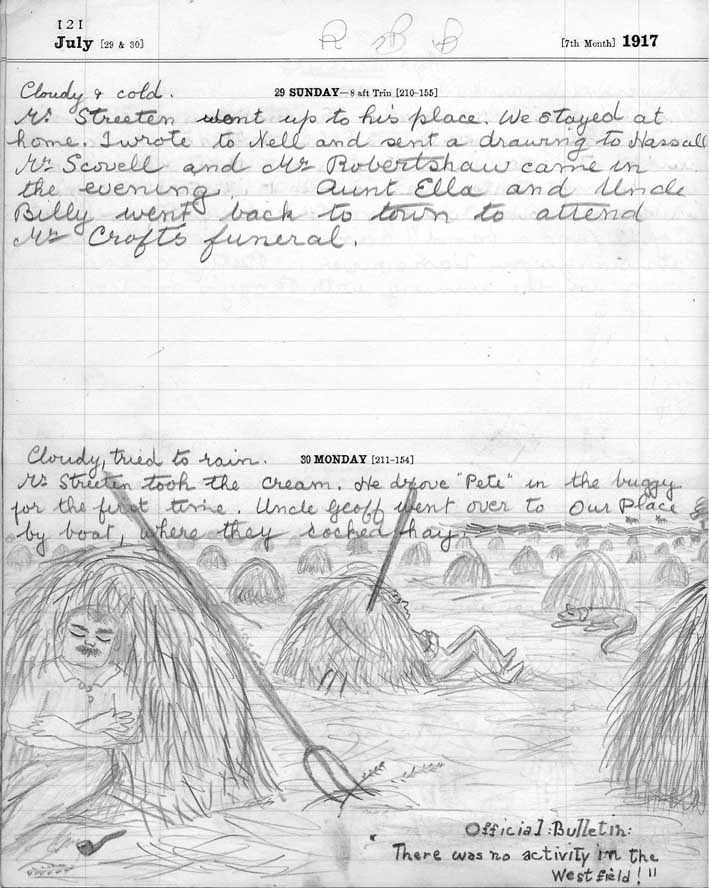 121
July [29 & 30] [7th Month] 1917
Cloudy & cold. 29 SUNDAY—8 aft Trin [210-155]
Mr. Streeten went up to his place. We stayed at
home. I wrote to Nell and sent a drawing to Hassall
Mr Scovell and Mr Robertshaw came in
the evening. Aunt Ella and Uncle
Billy went back to town to attend
Mr Crofts funeral.
Cloudy, tried to rain. 30 MONDAY [211-154]
Mr Streeten took the cream. He drove "Pete" in the buggy
for the first time. Uncle Geoff went over to Our Place
by boat, where they cocked hay.
Official: Bulletin:
"There was no activity in the
West field!"